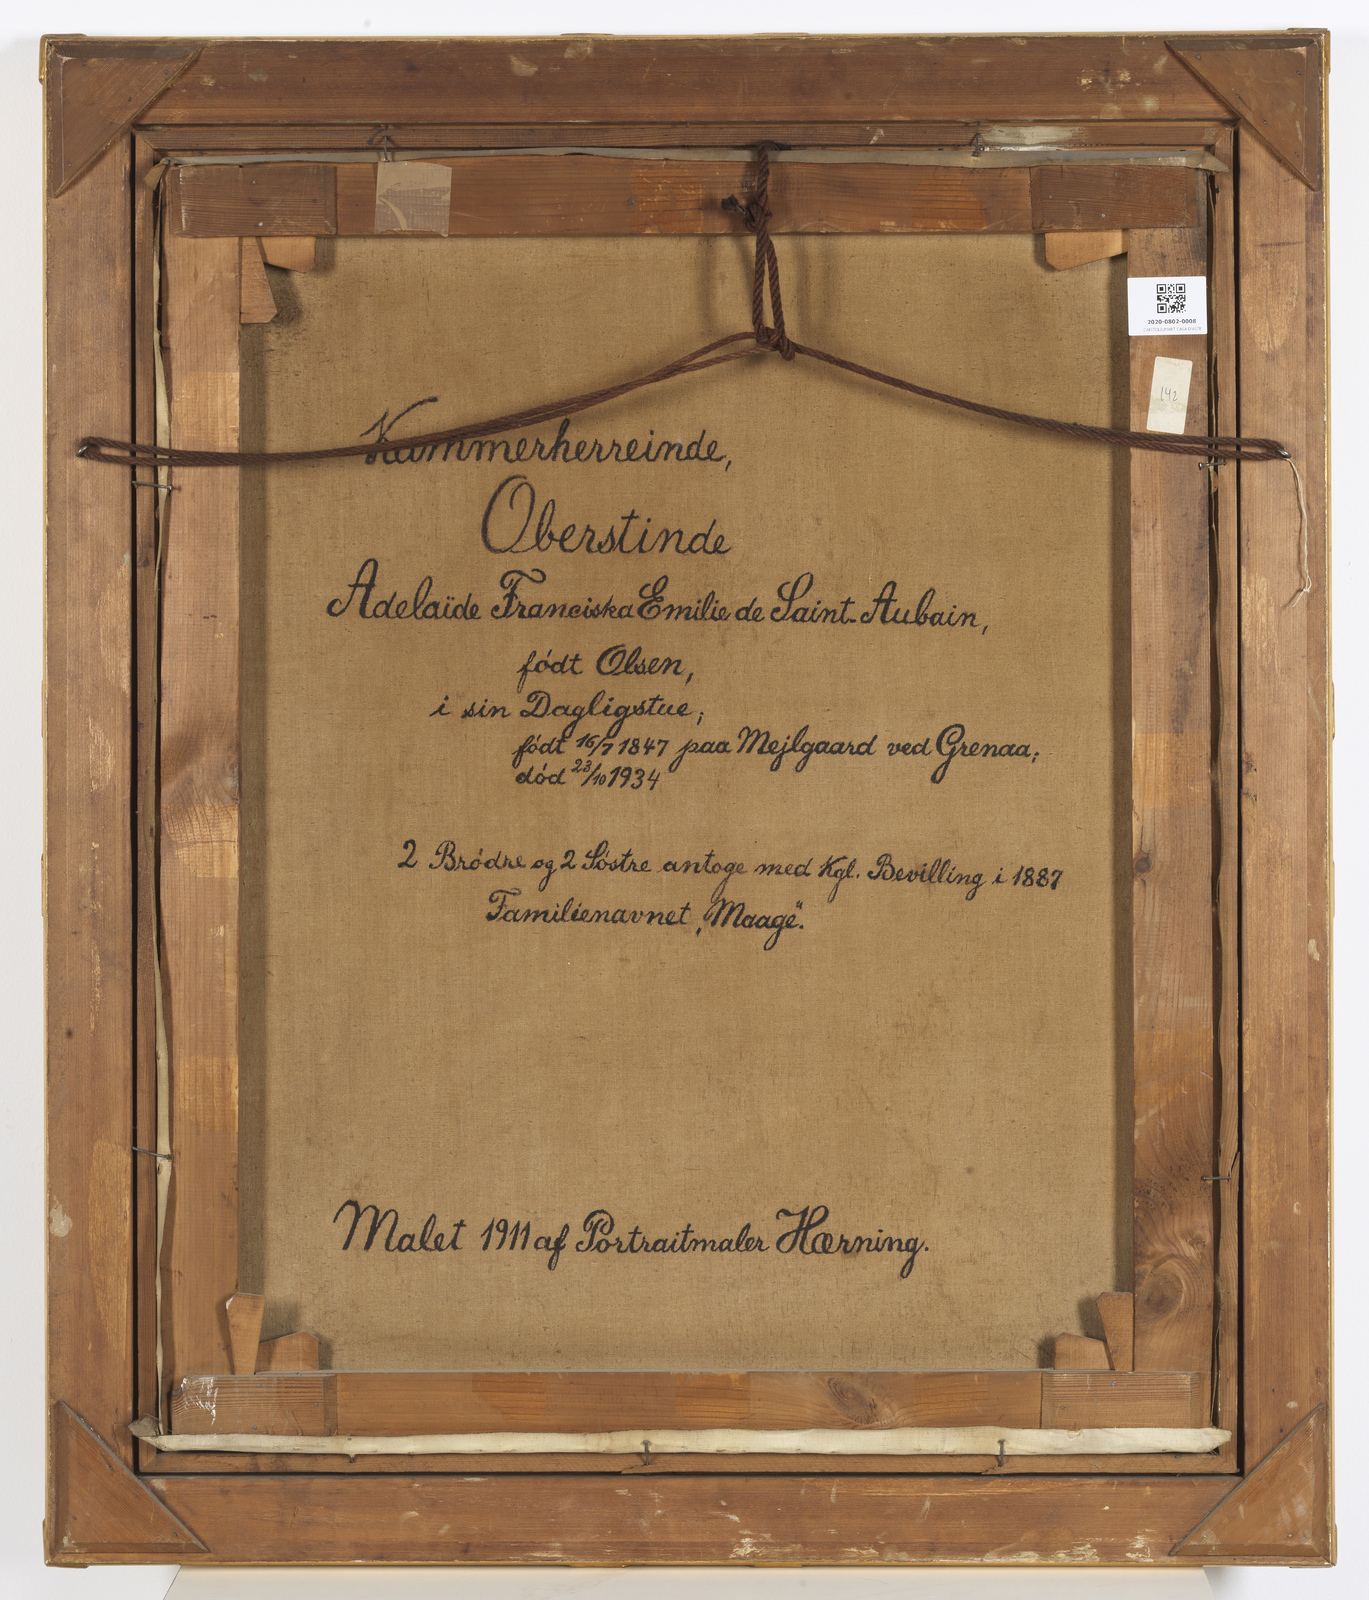 2020-0802-0008
142
Kammerherreinde,
Oberstinde
Adelaïde Franciska Emilie de Saint-Aubain,
códt Olsen,
i sin Dagligstue;
fódt 16/7 1847 paa Mejlgaard ved Grenaa;
dód 23/10 1934
2 Bródre og 2 Sóstre antoge med Kgl. Bevilling i 1887
Familienavnet „Maage“.
Malet 1911 af Portraitmaler Hærning.